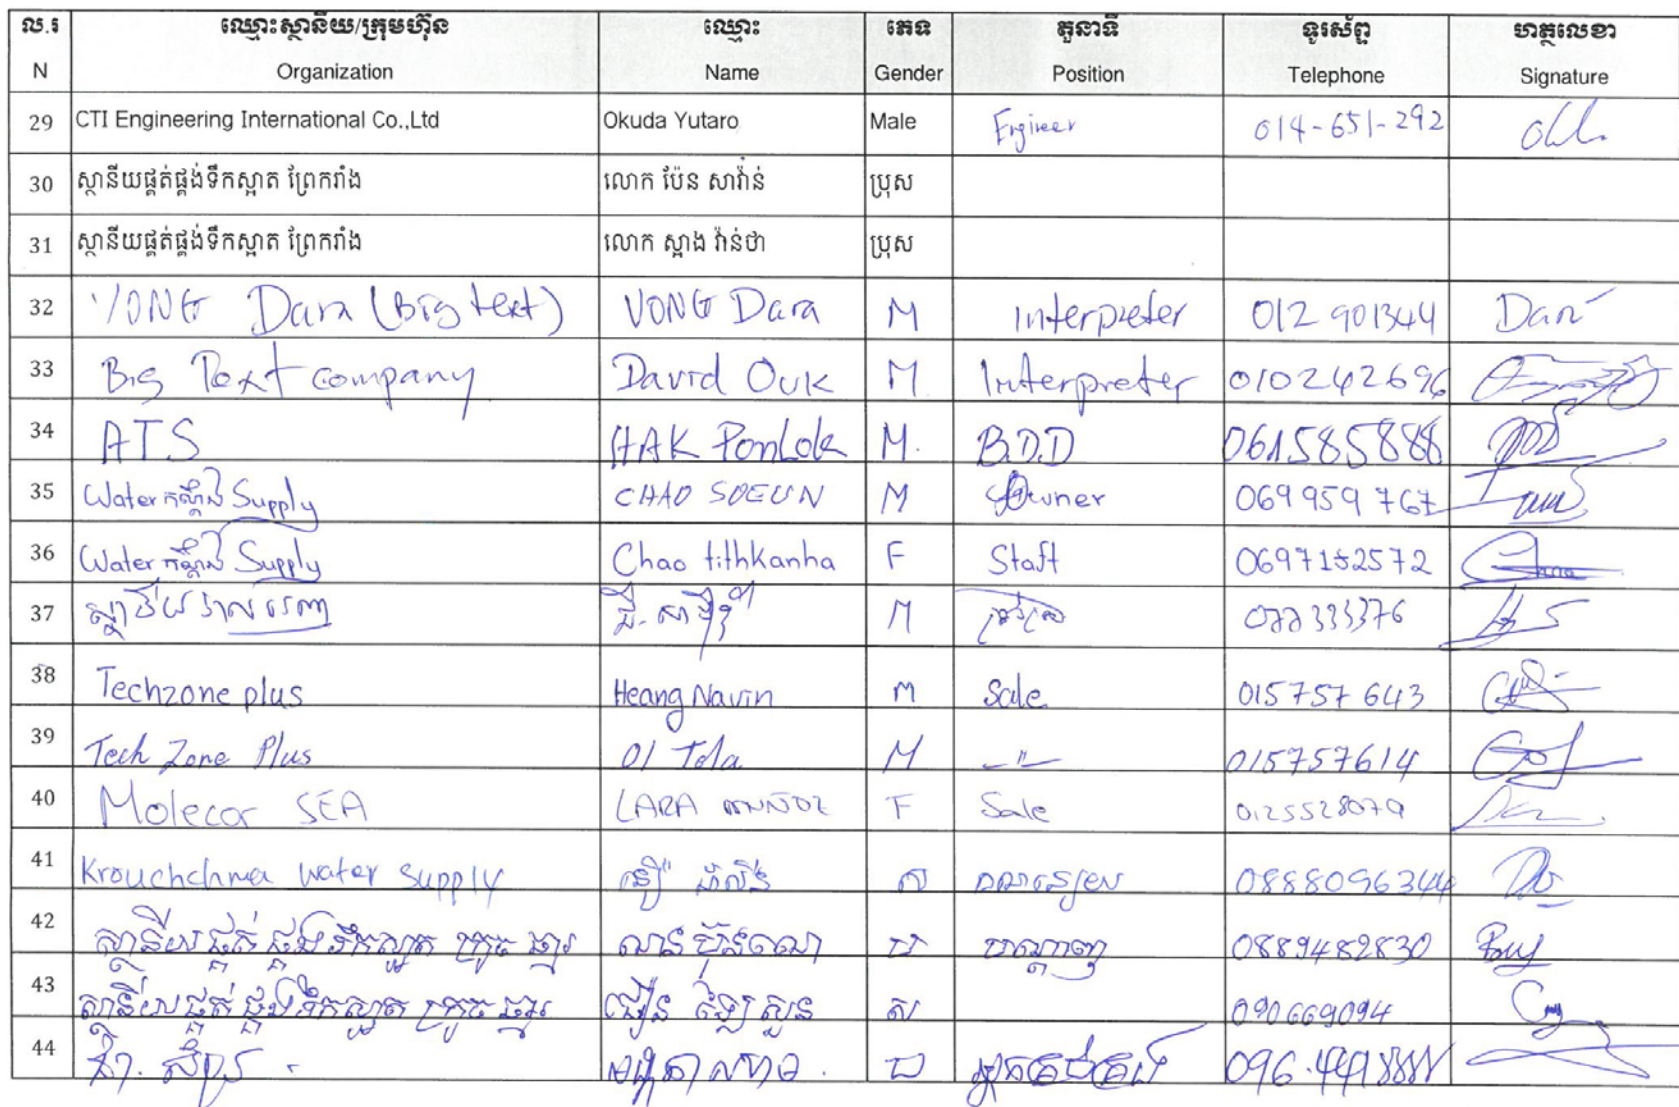 ល.រ ឈ្មោះស្ថានីយ/ក្រុមហ៊ុន ឈ្មោះ ភេទ តួនាទី ទូរស័ព្ទ ហត្ថលេខា
N Organization Name Gender Position Telephone Signature
29 CTI Engineering International Co.,Ltd Okuda Yutaro Male Engineer 014-651-292
30 ស្ថានីយផ្គត់ផ្គង់ទឹកស្អាត ព្រែករាំង លោក ប៉ែន សាវ៉ាន់ ប្រុស
31 ស្ថានីយផ្គត់ផ្គង់ទឹកស្អាត ព្រែករាំង លោក ស្អាង វ៉ាន់ថា ប្រុស
32 VONG Dara (Big text) VONG Dara M Interpreter 012 901344 Dara
33 Big Text company David Ouk M Interpreter 010242696
34 ATS HAK Ponlok M. B.D.D 061585888
35 Water Supply CHAO SOEUN M Owner 069 959 767
36 Water Supply Chao tithkanha F Staff 0697152572
37 M
38 Techzone plus Heang Navin M Sale 015757 643
39 Tech Zone Plus Ol Tola M —"— 015757614
40 Molecor SEA LARA MUÑOZ F Sale 0125528079
41 Krouchchma water supply ស 0888096344
42 ស្ថានីយផ្គត់ផ្គង់ទឹកស្អាត ក្រូចឆ្មារ ប បណ្តាញ 0889482830
43 ស្ថានីយផ្គត់ផ្គង់ទឹកស្អាត ក្រូចឆ្មារ ស 090669094
44 ប អ្នកគ្រប់គ្រង